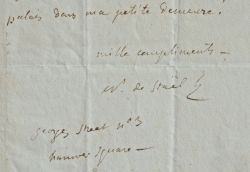 palais dans ma petite demeure.
mille complimens —
N. de Staël
georges Street n° 3
hanover Square —